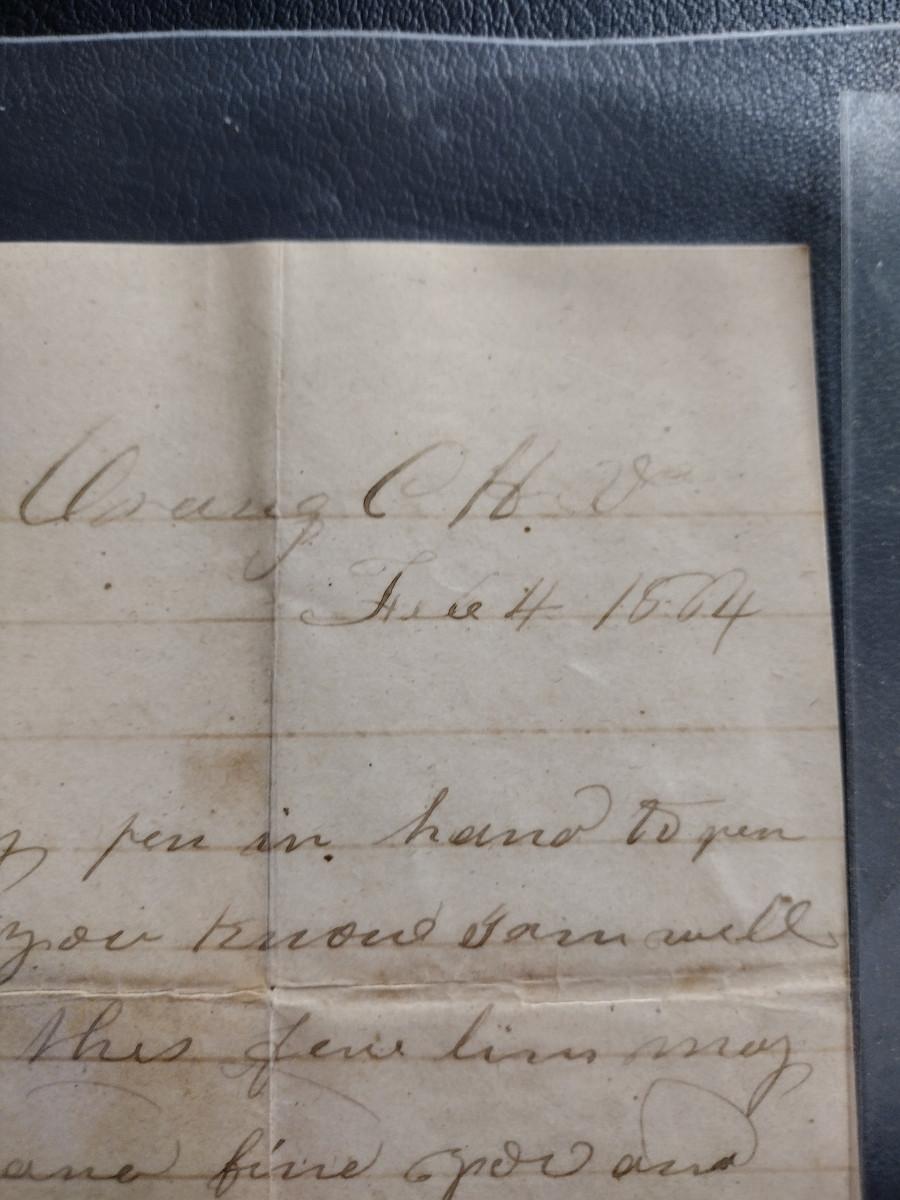 Orang C H. V
Feb 4 1864
pen in hand to pen
you know I am well
thes few lines may
and fine you and